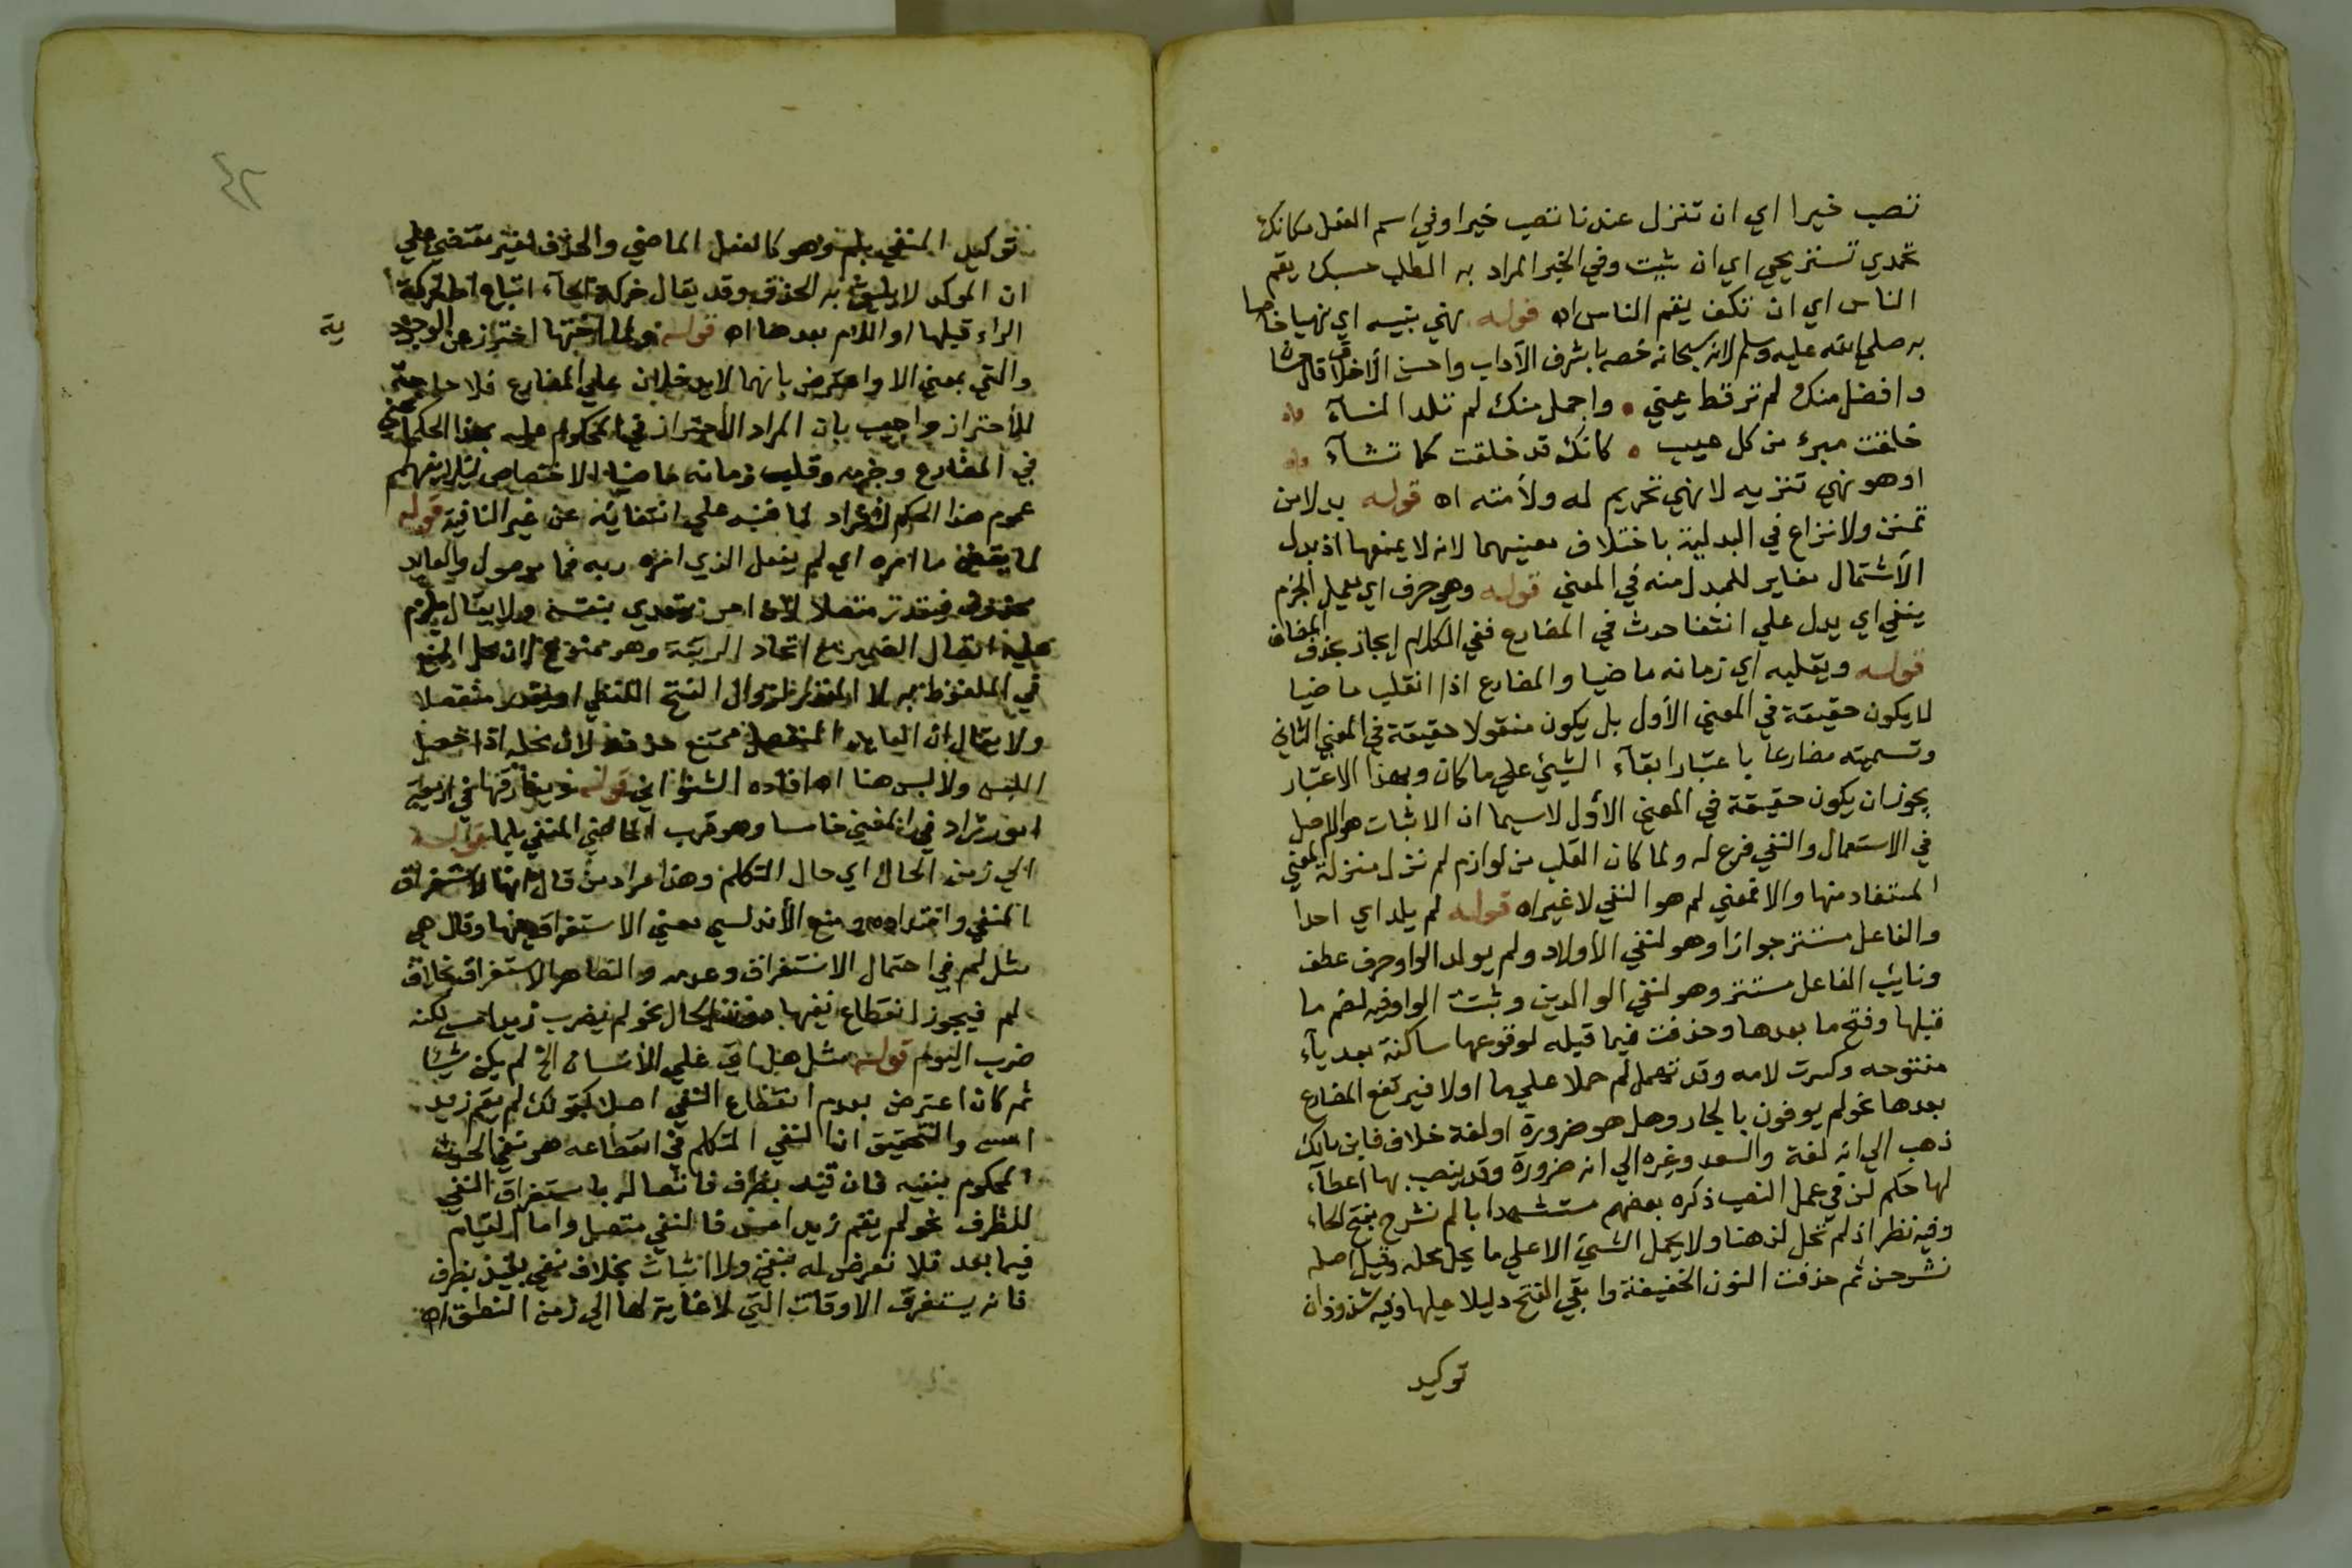 تصب خيرا اي ان تنزل عندنا تصب خيرا وفي اسم الفعل مكانك
تحمدي تستريحي اي ان يثبت وفي الخبر المراد به الطلب حسبك يقم
الناس اي ان تكف يقم الناس اه قوله نهي بنيه اي نهيا خاصا
به صلي الله عليه وسلم لانه سبحانه خصه باشرف الآداب واحسن الأخلاق قال
وافضل منك لم تر قط عيني واجمل منك لم تلد النسآء
خلقت مبرء من كل عيب كانك قد خلقت كما تشآء
او هو نهي تنزيه لا نهي تحريم له ولأمته اه قوله بدلا من
تمنن ولا نزاع في البدلية باختلاف معنيهما لانه لا يمنعها اذ بدل
الأشتمال مغاير للمبدل منه في المعني قوله وهي حرف اي يعمل الجزم
ينفي اي يدل علي انتفا حدث في المضارع ففي الكلام ايجاز بحذف المضاف
قوله ويقلبه اي زمانه ماضيا والمضارع اذا انقلب ماضيا
لا يكون حقيقة في المعني الأول بل يكون منقولا حقيقة في المعني الثاني
وتسميته مضارعا باعتبار ابقآء الشيئ علي ما كان وبهذا الاعتبار
يجوز ان يكون حقيقة في المعني الأول لاسيما ان الاثبات هو الاصل
في الاستعمال والنفي فرع له ولما كان القلب من لوازم لم نزل منزلة المعني
المستفاد منها والا فمعني لم هو النفي لا غير اه قوله لم يلد اي احدا
والفاعل مستتر جوازا وهو لنفي الأولاد ولم يولد الواو حرف عطف
ونايب الفاعل مستتر وهو لنفي الوالدين وثبت الواو فيه لضم ما
قبلها وفتح ما بعدها وحذفت فيما قبله لوقوعها ساكنة بعد يآء
مفتوحه وكسرت لامه وقد تهمل لم حملا علي ما اولا فيرتفع المضارع
بعدها نحو لم يوفون بالجار وهل هو ضرورة او لغة خلاف فابن مالك
ذهب الي انه لغة والسعد وغيره الي انه ضرورة وقد ينصب بها اعطآء
لها حكم لن في عمل النصب ذكره بعضهم مستشهدا بالم نشرح بفتح الحاء
وفيه نظر اذ لم تحل لن هنا ولا يحمل الشيئ الا علي ما يحل محله وقيل اصله
نشرحن ثم حذفت النون الخفيفة وابقي الفتح دليلا عليها وفيه شذوذ ان
توكيد
٤٢
توكيد المنفي بلم وهو كالفعل الماضي والحذف لغير مقتضي علي
ان الموكد لا يليق به الحذف وقد يقال حركة الحآء اتباع اما لحركة
الراء قبلها او اللام بعدها اه قوله ولما اختها احتراز من الوجودية
والتي بمعني الا واعترض بانهما لا يدخلان علي المضارع فلا حاجة
للأحتراز واجيب بان المراد الأحتراز في المحكوم عليه بهذا الحكم
في المضارع وجزمه وقلب زمانه ماضيا الاختصاص لئلا يفهم
عموم هذا الحكم لأفراد لما فنبه علي انتفائه عن غير النافية قوله
لما يقض ما امره اي لم يفعل الذي امره ربه فما موصول والعايد
محذوف فيقدر متصلا لأن امر يتعدي بنفسه ولا يقال يلزم
عليه اتصال الضمير مع اتحاد الرتبة وهو ممنوع لان محل المنع
في الملفوظ به لا المقدر لزوال القبح اللفظي او يقدر منفصلا
ولا يقال ان العايد المنفصل ممتنع حذفه لان محله اذا حصل
اللبس ولا لبس هنا اه افاده الشنواني قوله ويفارقها في اربعة
امور زاد في المغني خامسا وهو قرب الماضي المنفي بلما قوله
الي زمن الحال اي حال التكلم وهذا مراد من قال انها لاستغراق
المنفي وامتداده ومنع الأندلسي معني الاستغراق فيها وقال هي
مثل لم في احتمال الاستغراق وعدمه والظاهر الاستغراق بخلاف
لم فيجوز انقطاع نفيها دون الحال نحو لم يضرب زيد امس لكنه
ضرب اليوم قوله مثل هل اتي علي الأنسان الخ لم يكن شيئا
ثم كان اعترض بعدم انقطاع النفي اصلا كقولك لم يقم زيد
امس والتحقيق ان النفي المتكلم في انقطاعه هو نفي الحدث
المحكوم بنفيه فان قيد بظرف فاتصاله باستغراق النفي
للظرف نحو لم يقم زيد امس فالنفي متصل واما القيام
فيما بعد فلا تعرض له بنفي ولا اثبات بخلاف نفي بغير ظرف
فانه يستغرق الاوقات التي لا غاية لها الي زمن النطق اه